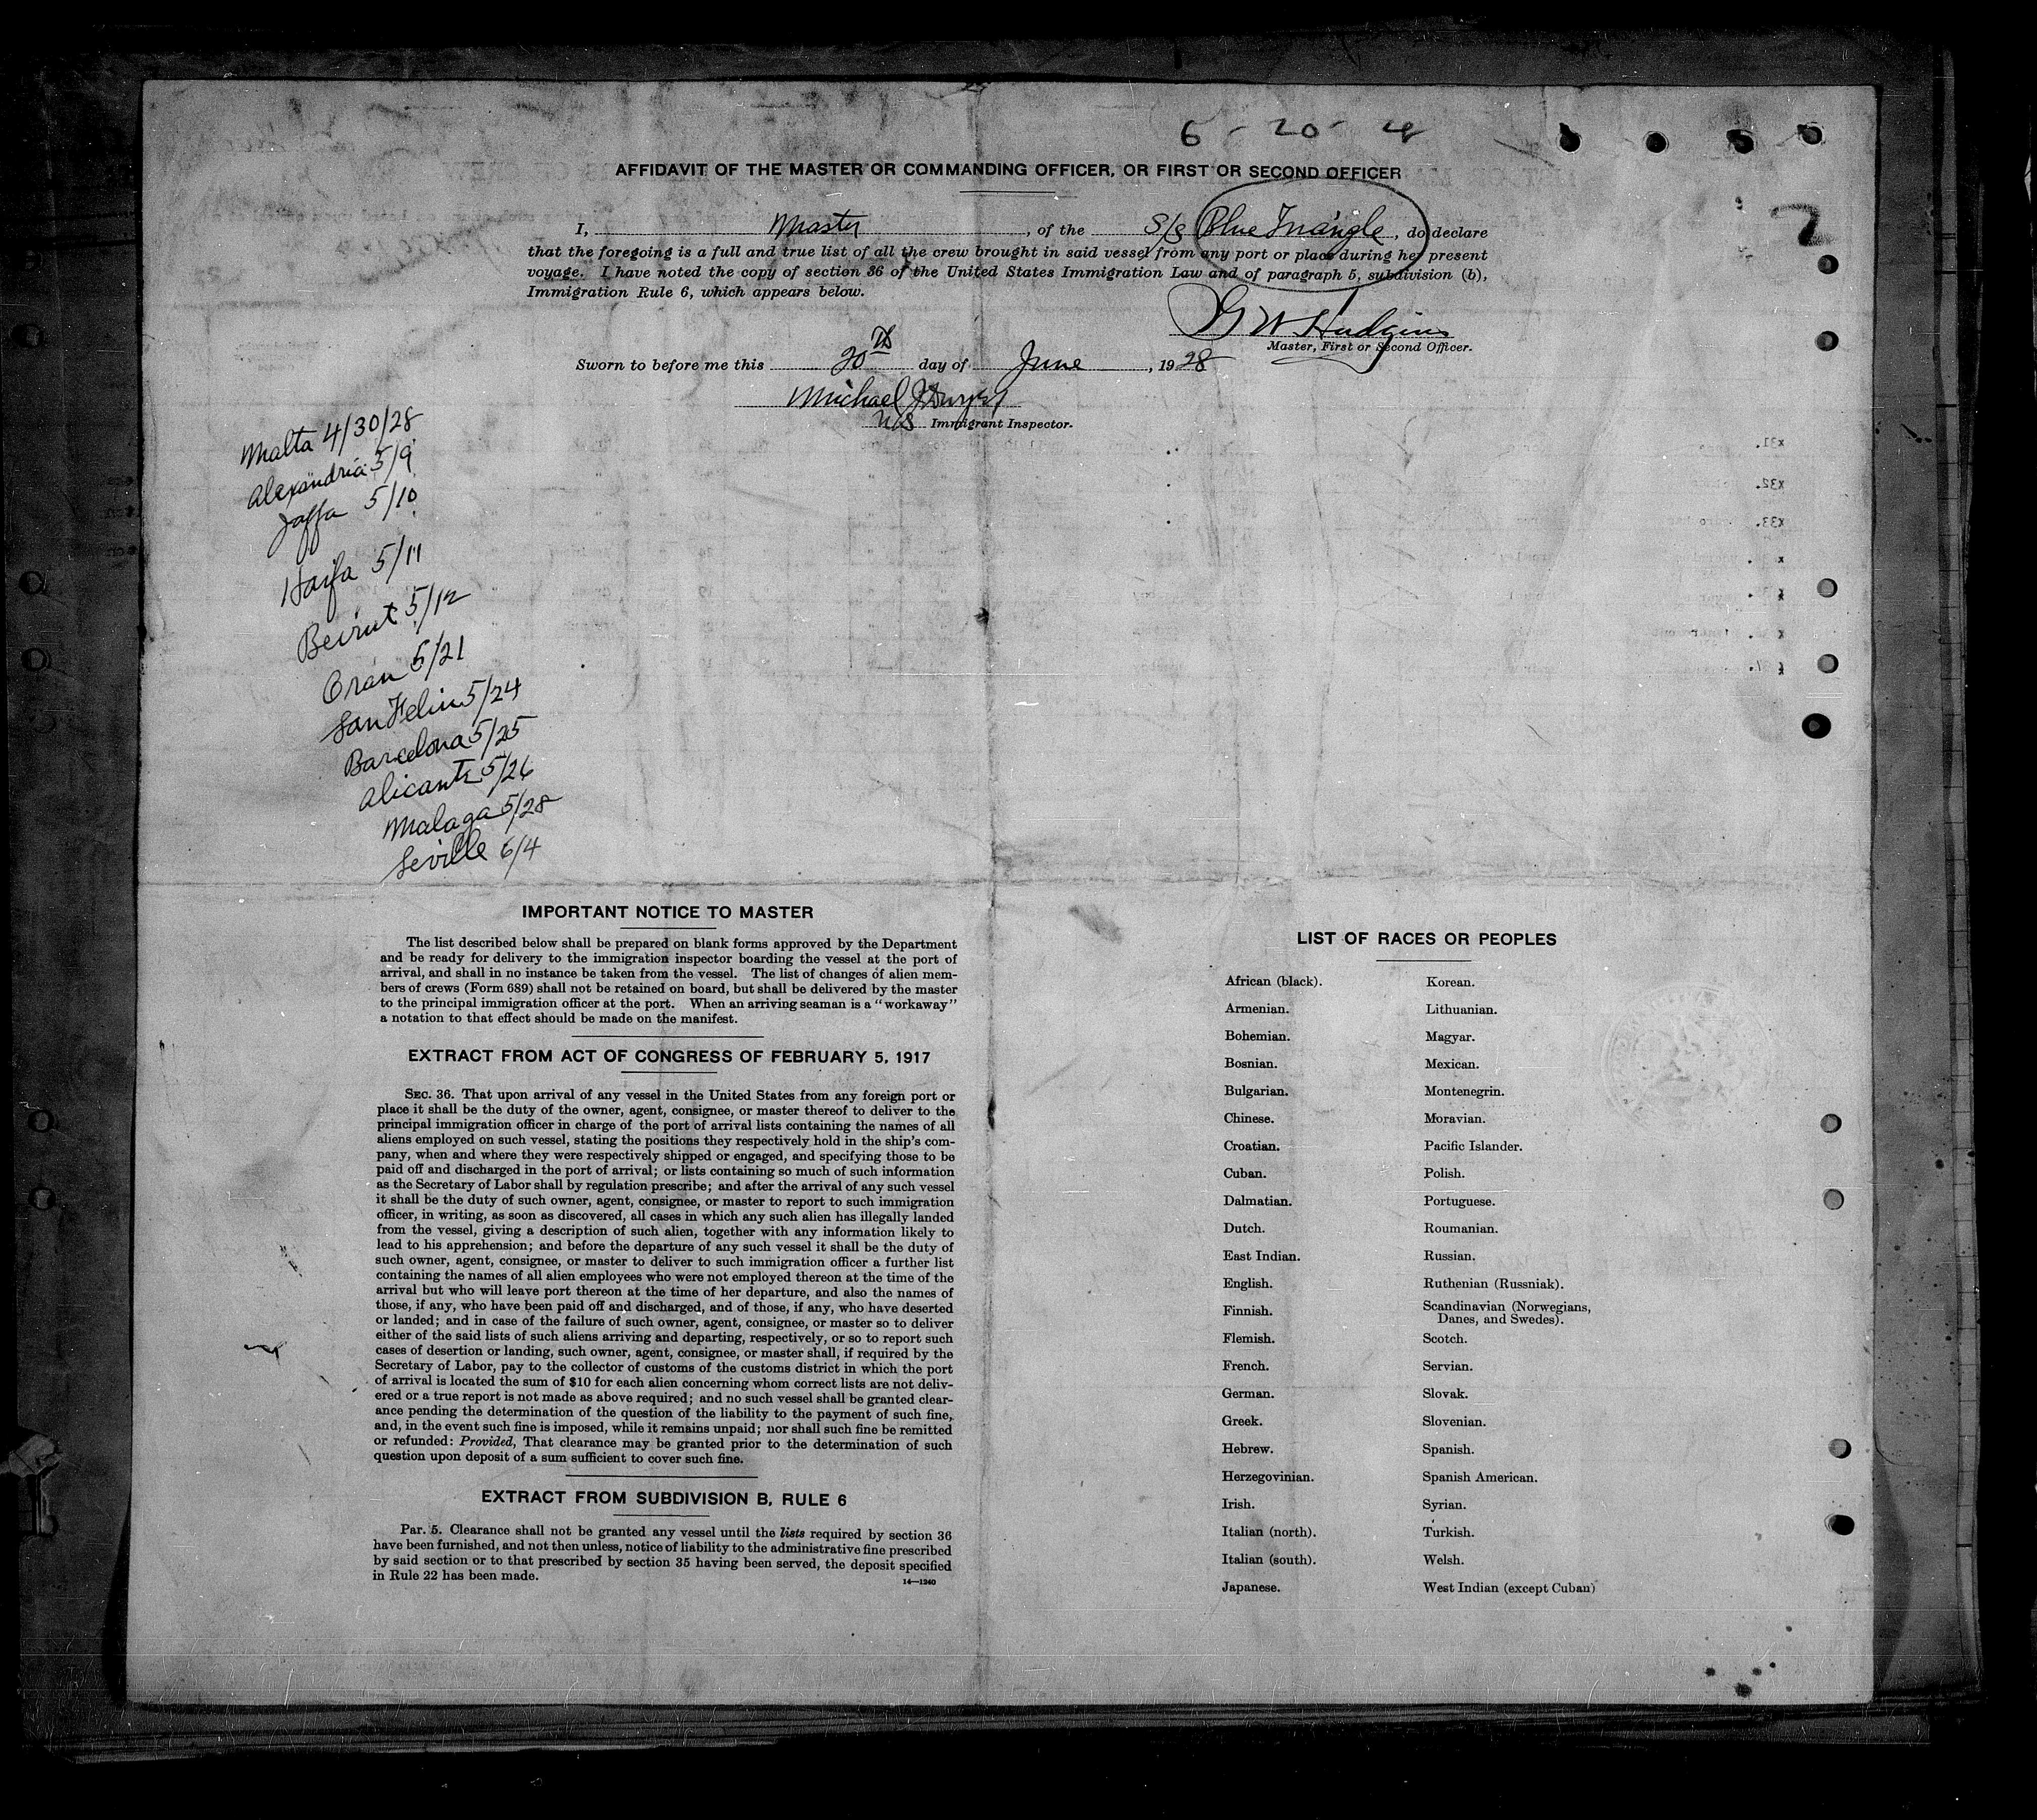 6-20-28
AFFIDAVIT OF THE MASTER OR COMMANDING OFFICER, OR FIRST OR SECOND OFFICER
I, Master, of the S/S Blue Triangle, do declare
that the foregoing is a full and true list of all the crew brought in said vessel from any port or place during her present
voyage. I have noted the copy of section 36 of the United States Immigration Law and of paragraph 5, subdivision (b),
Immigration Rule 6, which appears below.
G W Hudgins
Master, First or Second Officer.
Sworn to before me this 20th day of June, 1928
Michael J
US Immigrant Inspector.
Malta 4/30/28
Alexandria 5/9
Jaffa 5/10
Haifa 5/11
Beirut 5/12
Oran 5/21
San Feliu 5/24
Barcelona 5/25
Alicante 5/26
Malaga 5/28
Seville 6/4
IMPORTANT NOTICE TO MASTER
The list described below shall be prepared on blank forms approved by the Department
and be ready for delivery to the immigration inspector boarding the vessel at the port of
arrival, and shall in no instance be taken from the vessel. The list of changes of alien mem-
bers of crews (Form 689) shall not be retained on board, but shall be delivered by the master
to the principal immigration officer at the port. When an arriving seaman is a "workaway"
a notation to that effect should be made on the manifest.
EXTRACT FROM ACT OF CONGRESS OF FEBRUARY 5, 1917
SEC. 36. That upon arrival of any vessel in the United States from any foreign port or
place it shall be the duty of the owner, agent, consignee, or master thereof to deliver to the
principal immigration officer in charge of the port of arrival lists containing the names of all
aliens employed on such vessel, stating the positions they respectively hold in the ship's com-
pany, when and where they were respectively shipped or engaged, and specifying those to be
paid off and discharged in the port of arrival; or lists containing so much of such information
as the Secretary of Labor shall by regulation prescribe; and after the arrival of any such vessel
it shall be the duty of such owner, agent, consignee, or master to report to such immigration
officer, in writing, as soon as discovered, all cases in which any such alien has illegally landed
from the vessel, giving a description of such alien, together with any information likely to
lead to his apprehension; and before the departure of any such vessel it shall be the duty of
such owner, agent, consignee, or master to deliver to such immigration officer a further list
containing the names of all alien employees who were not employed thereon at the time of the
arrival but who will leave port thereon at the time of her departure, and also the names of
those, if any, who have been paid off and discharged, and of those, if any, who have deserted
or landed; and in case of the failure of such owner, agent, consignee, or master so to deliver
either of the said lists of such aliens arriving and departing, respectively, or so to report such
cases of desertion or landing, such owner, agent, consignee, or master shall, if required by the
Secretary of Labor, pay to the collector of customs of the customs district in which the port
of arrival is located the sum of $10 for each alien concerning whom correct lists are not deliv-
ered or a true report is not made as above required; and no such vessel shall be granted clear-
ance pending the determination of the question of the liability to the payment of such fine,
and, in the event such fine is imposed, while it remains unpaid; nor shall such fine be remitted
or refunded: Provided, That clearance may be granted prior to the determination of such
question upon deposit of a sum sufficient to cover such fine.
EXTRACT FROM SUBDIVISION B, RULE 6
Par. 5. Clearance shall not be granted any vessel until the lists required by section 36
have been furnished, and not then unless, notice of liability to the administrative fine prescribed
by said section or to that prescribed by section 35 having been served, the deposit specified
in Rule 22 has been made.
14—1240
LIST OF RACES OR PEOPLES
African (black).
Armenian.
Bohemian.
Bosnian.
Bulgarian.
Chinese.
Croatian.
Cuban.
Dalmatian.
Dutch.
East Indian.
English.
Finnish.
Flemish.
French.
German.
Greek.
Hebrew.
Herzegovinian.
Irish.
Italian (north).
Italian (south).
Japanese.
Korean.
Lithuanian.
Magyar.
Mexican.
Montenegrin.
Moravian.
Pacific Islander.
Polish.
Portuguese.
Roumanian.
Russian.
Ruthenian (Russniak).
Scandinavian (Norwegians,
Danes, and Swedes).
Scotch.
Servian.
Slovak.
Slovenian.
Spanish.
Spanish American.
Syrian.
Turkish.
Welsh.
West Indian (except Cuban)